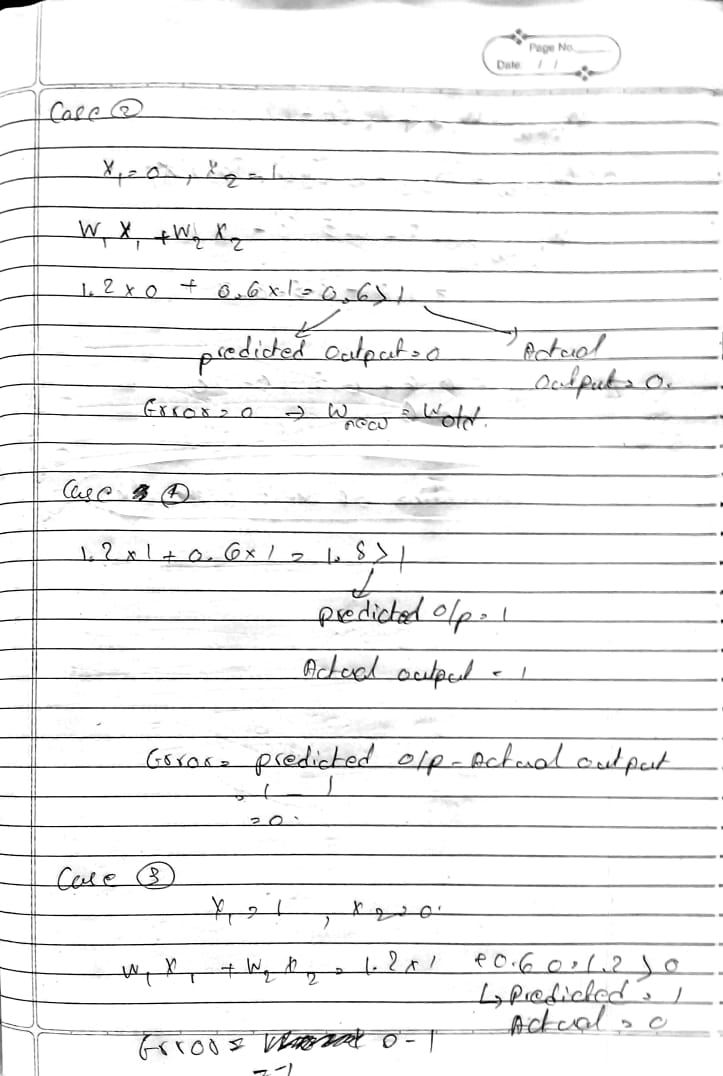 Page No.
Date: / /
Case ②
X₁ = 0, X₂ = 1
W₁ X₁ + W₂ X₂ =
1.2 x 0 + 0.6 x 1 = 0.6 > 1
predicted output = 0 Actual
output = 0.
Error = 0 → W new = W old.
Case ④
1.2 x 1 + 0.6 x 1 = 1.8 > 1
predicted o/p = 1
Actual output = 1
Error = predicted o/p - Actual output
= 1 - 1
= 0.
Case ③
X₁ = 1, X₂ = 0.
W₁ X₁ + W₂ X₂ = 1.2 x 1 + 0.6 0 = 1.2 > 0
↳ predicted = 1
Actual = 0
Error = 0 - 1
= -1